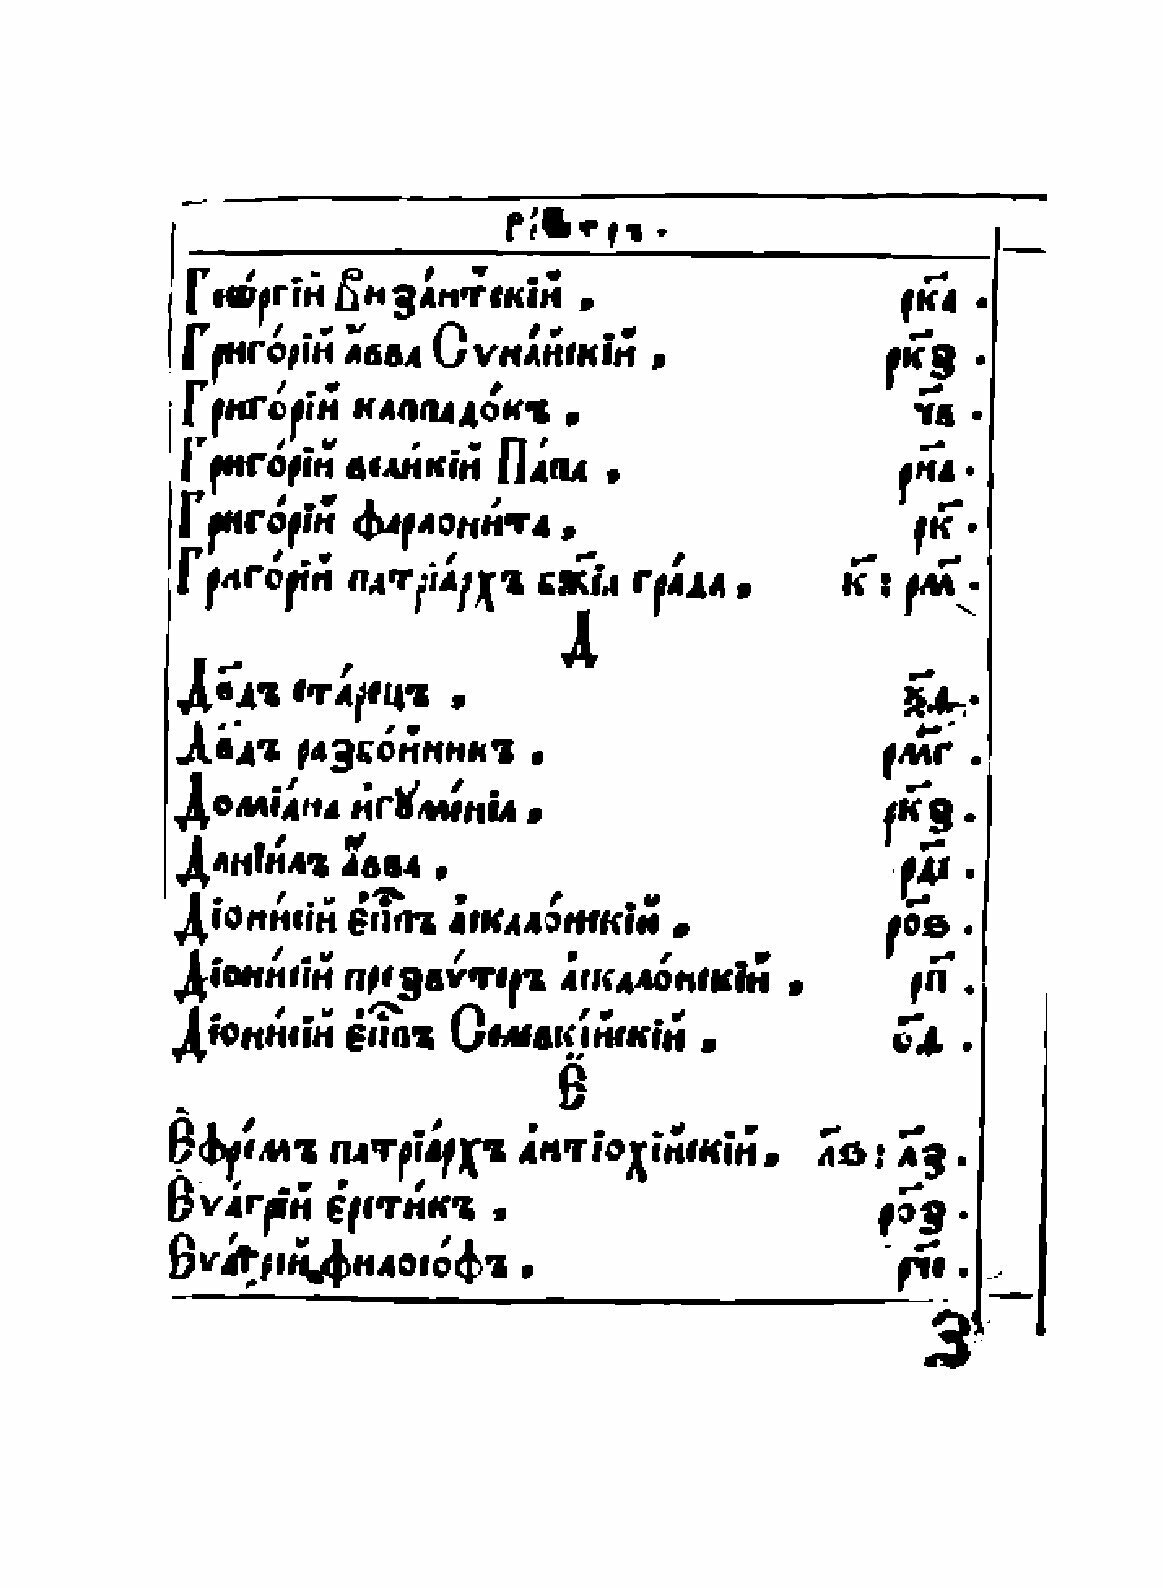 Геѡ́ргїй Виза́нтїскїй . рк҃а .
Григо́рїй а҆́вва Сѵна́йскїй . рк҃з .
Григо́рїй каппадо́къ . ч҃в .
Григо́рїй вели́кїй Па́па . рн҃а .
Григо́рїй фарлони́та . рк҃ .
Григо́рїй патрїа́рхъ бж҃їѧ гра́да . к҃ : рм҃ .
Д
Дв҃дъ ста́рецъ .
Дв҃дъ разбо́йникъ . рм҃г .
Домїа́на и҆гꙋ́менїа . рк҃з .
Данїи́лъ а҆́вва . рд҃і .
Дїонѵ́сїй є҆п҃пъ а҆скало́нскїй . ро҃в .
Дїони́сїй презвѵ́теръ а҆скало́нскїй . рп҃ .
Дїони́сїй є҆п҃пъ Селевкі́йскїй . о҃д .
Є҆
Є҆фре́мъ патрїа́рхъ а҆нтїохі́йскїй . л҃в : л҃з .
Є҆ѵа́грїй є҆рети́къ . ро҃з .
Є҆ѵа́грїй філосо́фъ . рч҃и .
З